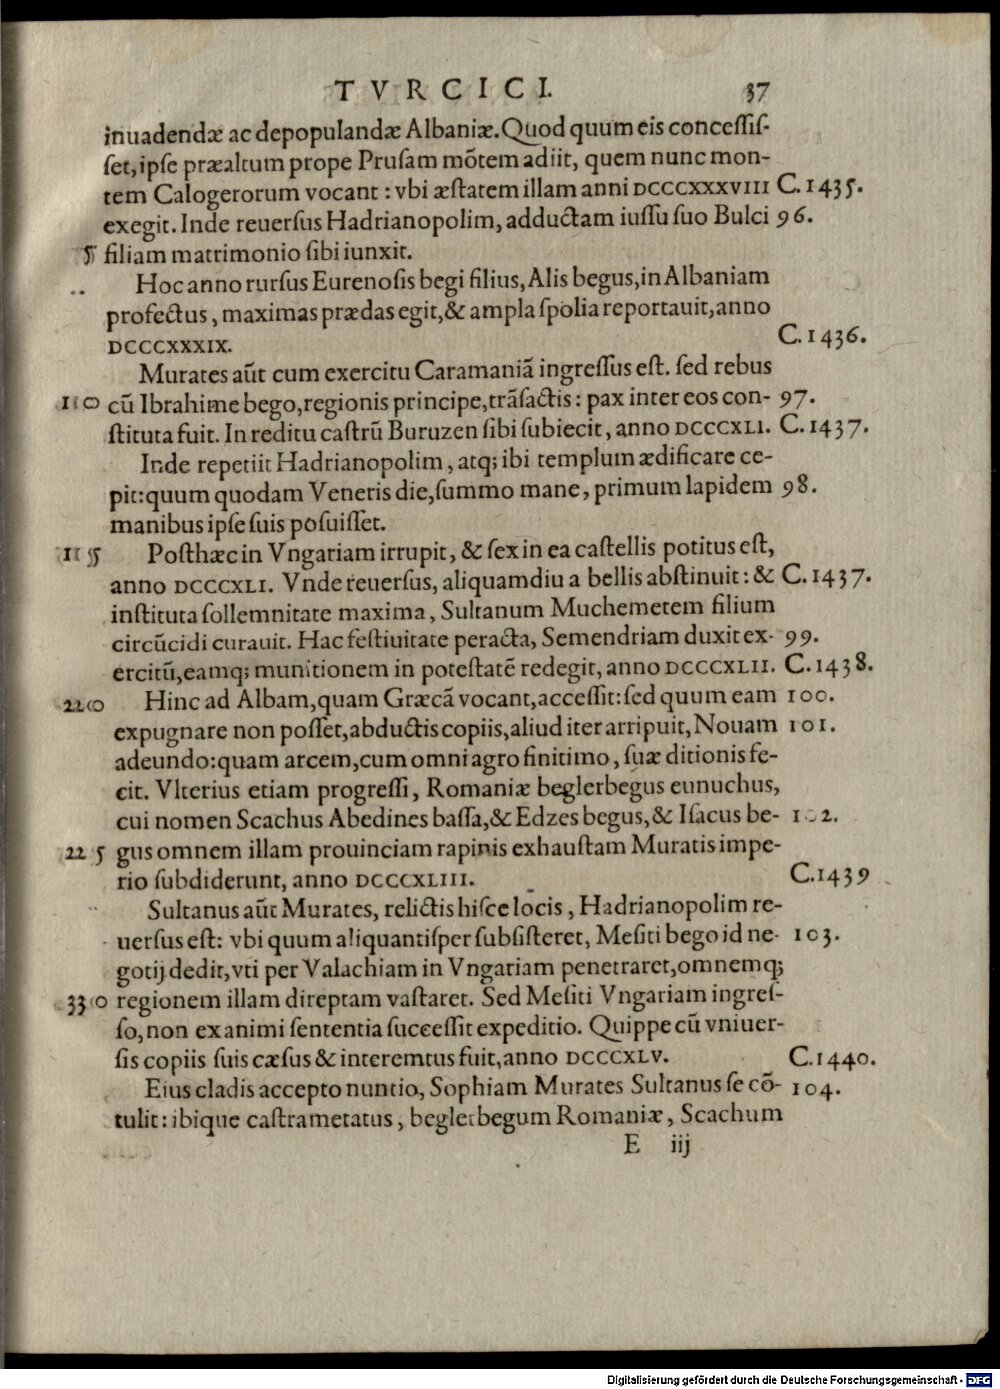 TVRCICI. 37
inuadendæ ac depopulandæ Albaniæ. Quod quum eis concessis-
set, ipse præaltum prope Prusam mõtem adiit, quem nunc mon-
tem Calogerorum vocant : vbi æstatem illam anni DCCCXXXVIII C. 1435.
exegit. Inde reuersus Hadrianopolim, adductam iussu suo Bulci 96.
5 filiam matrimonio sibi iunxit.
Hoc anno rursus Eurenosis begi filius, Alis begus, in Albaniam
profectus, maximas prædas egit, & ampla spolia reportauit, anno
DCCCXXXIX. C. 1436.
Murates aũt cum exercitu Caramaniã ingressus est. sed rebus
10 cũ Ibrahime bego, regionis principe, trãsactis : pax inter eos con- 97.
stituta fuit. In reditu castrũ Buruzen sibi subiecit, anno DCCCXLI. C. 1437.
Inde repetiit Hadrianopolim, atq; ibi templum ædificare ce-
pit: quum quodam Veneris die, summo mane, primum lapidem 98.
manibus ipse suis posuisset.
15 Posthæc in Vngariam irrupit, & sex in ea castellis potitus est,
anno DCCCXLI. Vnde reuersus, aliquamdiu a bellis abstinuit : & C. 1437.
instituta sollemnitate maxima, Sultanum Muchemetem filium
circũcidi curauit. Hac festiuitate peracta, Semendriam duxit ex- 99.
ercitũ, eamq; munitionem in potestatẽ redegit, anno DCCCXLII. C. 1438.
20 Hinc ad Albam, quam Græcã vocant, accessit: sed quum eam 100.
expugnare non posset, abductis copiis, aliud iter arripuit, Nouam 101.
adeundo: quam arcem, cum omni agro finitimo, suæ ditionis fe-
cit. Vlterius etiam progressi, Romaniæ beglerbegus eunuchus,
cui nomen Scachus Abedines bassa, & Edzes begus, & Isacus be- 102.
25 gus omnem illam prouinciam rapinis exhaustam Muratis impe-
rio subdiderunt, anno DCCCXLIII. C. 1439
Sultanus aũt Murates, relictis hisce locis, Hadrianopolim re-
uersus est: vbi quum aliquantisper subsisteret, Mesiti bego id ne- 103.
gotij dedit, vti per Valachiam in Vngariam penetraret, omnemq;
30 regionem illam direptam vastaret. Sed Mesiti Vngariam ingres-
so, non ex animi sententia successit expeditio. Quippe cũ vniuer-
sis copiis suis cæsus & interemtus fuit, anno DCCCXLV. C. 1440.
Eius cladis accepto nuntio, Sophiam Murates Sultanus se cõ- 104.
tulit: ibique castrametatus, beglerbegum Romaniæ, Scachum
E iij
Digitalisierung gefördert durch die Deutsche Forschungsgemeinschaft - DFG